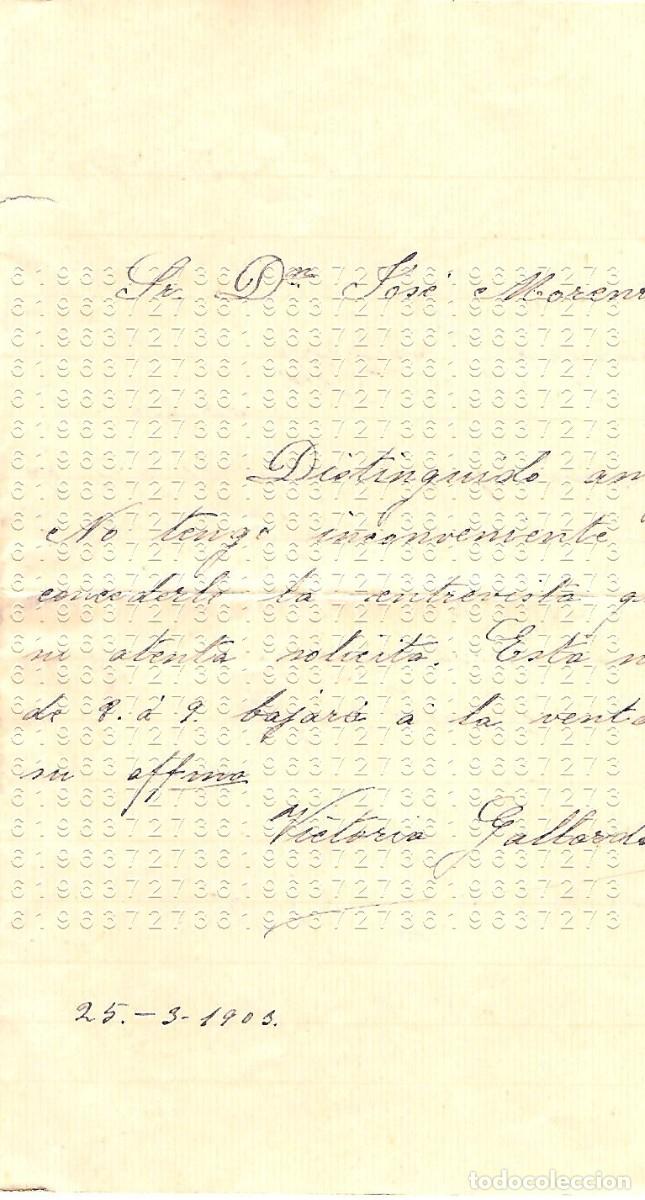 Sr. Dn José Moreno
Distinguido am
No tengo inconveniente
concederle la entrevista q
su atenta solicita. Esta n
de 8. á 9. bajaré a la venta
su affma
Victoria Gallardo
25.-3-1903.
619637273619637273619637273
todocoleccion